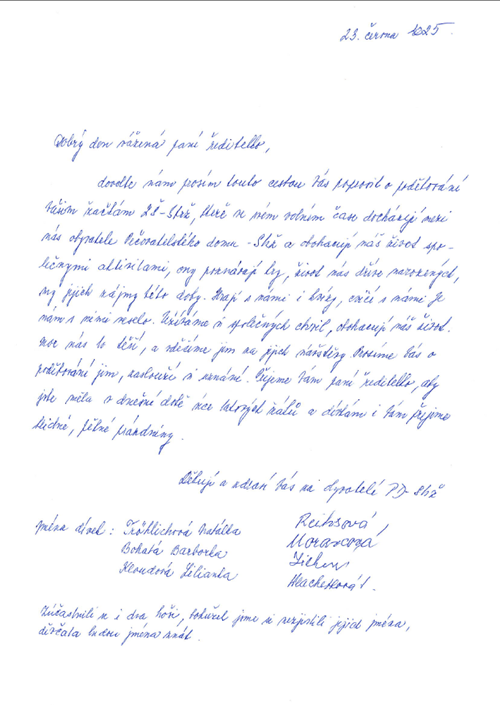 23. června 2025.
Dobrý den vážená paní ředitelko,
dovolte nám prosím touto cestou Vás poprosit o poděkování
Vašim žačkám ZŠ-Stráž, které ve svém volném čase docházejí mezi
nás obyvatele Pečovatelského domu - Stráž a obohacují náš život spo-
lečnými aktivitami, ony poznávají my, život nás dříve narozených,
my jejich zájmy této doby. Hrají s námi i hry, cvičí s námi. Je
nám s nimi veselo. Užíváme si společných chvil, obohacují náš život.
moc nás to těší, a vděčíme jim za jejich návštěvy. Prosíme Vás o
poděkování jim, zaslouží si uznání. Přejeme Vám paní ředitelko, aby
jste měla v dnešní době více takových žáků a dětem i Vám přejeme
klidné, pěkné prázdniny.
Děkují a zdraví Vás obyvatelé PD-Stráž
jména dívek: Fröhlichová Natálka
Bohatá Barborka
Kloudová Lilianka
Reithsová,
Moravcová
Macháčková J.
Zúčastnili se i dva hoši, bohužel jsme si nezjistili jejich jména,
děvčata budou jména znát.